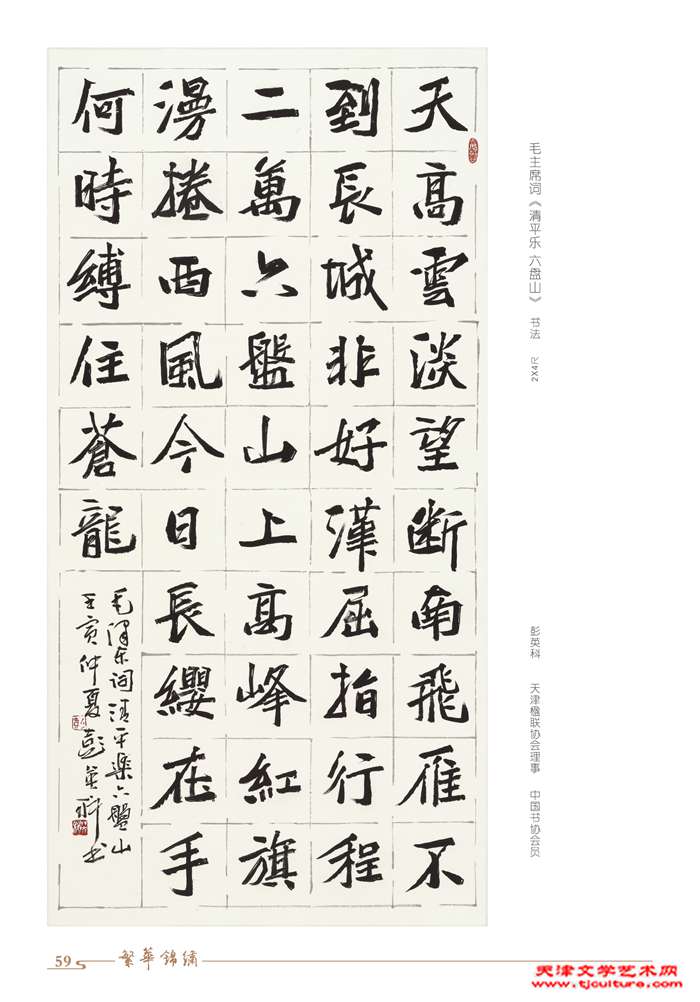 天高雲淡望断南飛雁不
到長城非好漢屈指行程
二萬六盤山上高峰紅旗
漫捲西風今日長纓在手
何時縛住蒼龍
毛澤东词清平樂六盤山
壬寅仲夏彭英科书
毛主席词《清平乐 六盘山》 书法 2X4尺
彭英科 天津楹联协会理事 中国书协会员
59 繁華錦繡
天津文学艺术网
www.tjculture.com